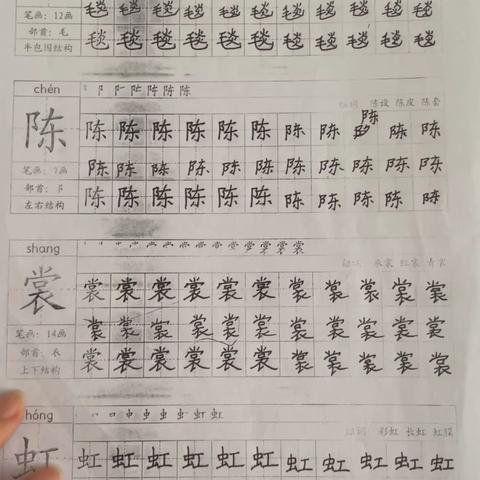 毯 毯 毯 毯 毯 毯 毯 毯 毯 毯 毯
笔画：12画
毯 毯 毯 毯 毯 毯 毯 毯 毯 毯 毯
部首：毛
半包围结构
chén
组词 陈设 陈皮
陈
陈 陈 陈 陈 陈 陈 陈 陈 陈 陈 陈
笔画：7画
陈 陈 陈 陈 陈 陈 陈 陈 陈 陈 陈
部首：阝
陈 陈 陈 陈 陈 陈 陈 陈 陈 陈 陈
左右结构
shang
组词 衣裳 红裳
裳
裳 裳 裳 裳 裳 裳 裳 裳 裳 裳 裳
笔画：14画
裳 裳 裳 裳 裳 裳 裳 裳 裳 裳 裳
部首：衣
裳 裳 裳 裳 裳 裳 裳 裳 裳 裳 裳
上下结构
hóng
组词 彩虹 长虹
虹
虹 虹 虹 虹 虹 虹 虹 虹 虹 虹 虹